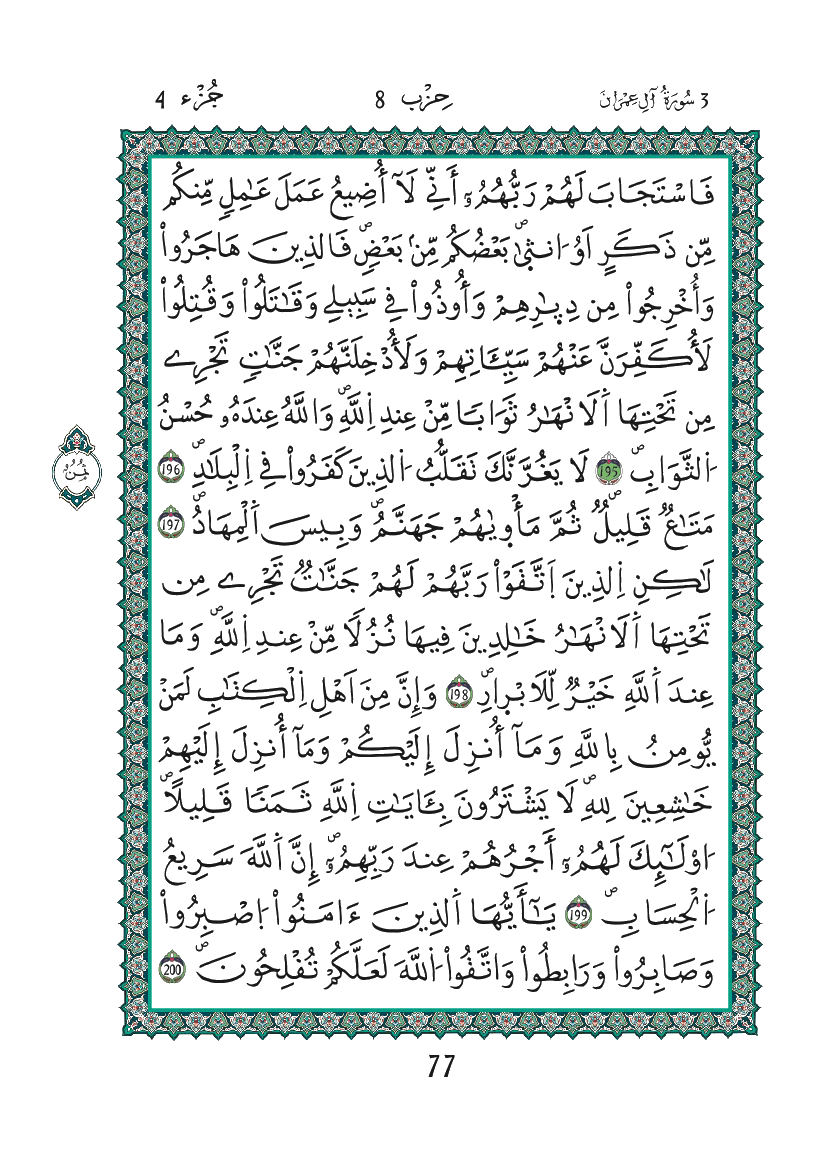 3 سُورَةُ آلِ عِمْرَانَ حِزْب 8 جُزْء 4
فَاسْتَجَابَ لَهُمْ رَبُّهُمُۥٓ أَنِّے لَآ أُضِيعُ عَمَلَ عَٰمِلٖ مِّنكُم
مِّن ذَكَرٍ اَوُ ا۟نث۪ىٰۖ بَعْضُكُم مِّنۢ بَعْضٖۖ فَالذِينَ هَاجَرُواْ
وَأُخْرِجُواْ مِن دِيٰ۪رِهِمْ وَأُوذُواْ فِے سَبِيلِے وَقَٰتَلُواْ وَقُتِلُواْ
لَأُكَفِّرَنَّ عَنْهُمْ سَيِّـَٔاتِهِمْ وَلَأُدْخِلَنَّهُمْ جَنَّٰتٖ تَجْرِے
مِن تَحْتِهَا اَ۬لَانْهَٰرُ ثَوَاباٗ مِّنْ عِندِ اِ۬للَّهِۖ وَاللَّهُ عِندَهُۥ حُسْنُ
اُ۬لثَّوَابِۖ 195 لَا يَغُرَّنَّكَ تَقَلُّبُ اُ۬لذِينَ كَفَرُواْ فِے اِ۬لْبِلَٰدِۖ 196
مَتَٰعٞ قَلِيلٞۖ ثُمَّ مَأْو۪يٰهُمْ جَهَنَّمُۖ وَبِيسَ اَ۬لْمِهَادُۖ 197
لَٰكِنِ اِ۬لذِينَ اَ۪تَّقَوْاْ رَبَّهُمْ لَهُمْ جَنَّٰتٞ تَجْرِے مِن
تَحْتِهَا اَ۬لَانْهَٰرُ خَٰلِدِينَ فِيهَا نُزُلاٗ مِّنْ عِندِ اِ۬للَّهِۖ وَمَا
عِندَ اَ۬للَّهِ خَيْرٞ لِّلَابْر۪ارِۖ 198 وَإِنَّ مِنَ اَهْلِ اِ۬لْكِتَٰبِ لَمَنْ
يُّومِنُ بِاللَّهِ وَمَآ أُنزِلَ إِلَيْكُمْ وَمَآ أُنزِلَ إِلَيْهِمْ
خَٰشِعِينَ لِلهِۖ لَا يَشْتَرُونَ بِـَٔايَٰتِ اِ۬للَّهِ ثَمَناٗ قَلِيلاًۖ
ا۟وْلَٰٓئِكَ لَهُمُۥٓ أَجْرُهُمْ عِندَ رَبِّهِمُۥٓۖ إِنَّ اَ۬للَّهَ سَرِيعُ
اُ۬لْحِسَابِۖ 199 يَٰٓأَيُّهَا اَ۬لذِينَ ءَامَنُواْ اُ۪صْبِرُواْ
وَصَابِرُواْ وَرَابِطُواْ وَاتَّقُواْ اُ۬للَّهَ لَعَلَّكُمْ تُفْلِحُونَۖ 200
ثُمُن
77